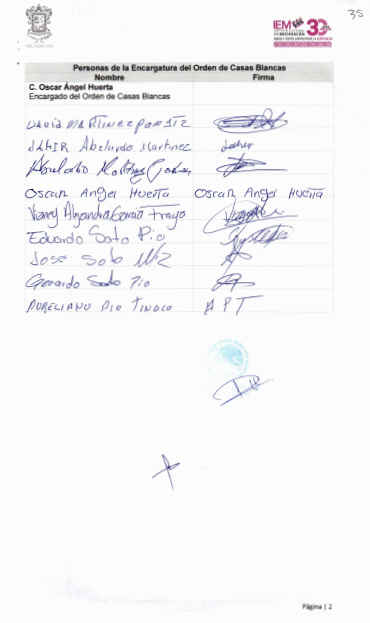 35
MICHOACÁN
IEM
Personas de la Encargatura del Orden de Casas Blancas
Nombre Firma
C. Oscar Ángel Huerta
Encargado del Orden de Casas Blancas
DAVID MARTINEZ
JAHIR Abelardo Martinez Jahir
Abelardo Martinez
Oscar Angel Huerta Oscar Angel Huerta
Alejandra Trejo
Eduardo Soto Pio
JOSE Soto
Gerardo Soto Pio
AURELIANO PIO TINOCO A P T
Página | 2